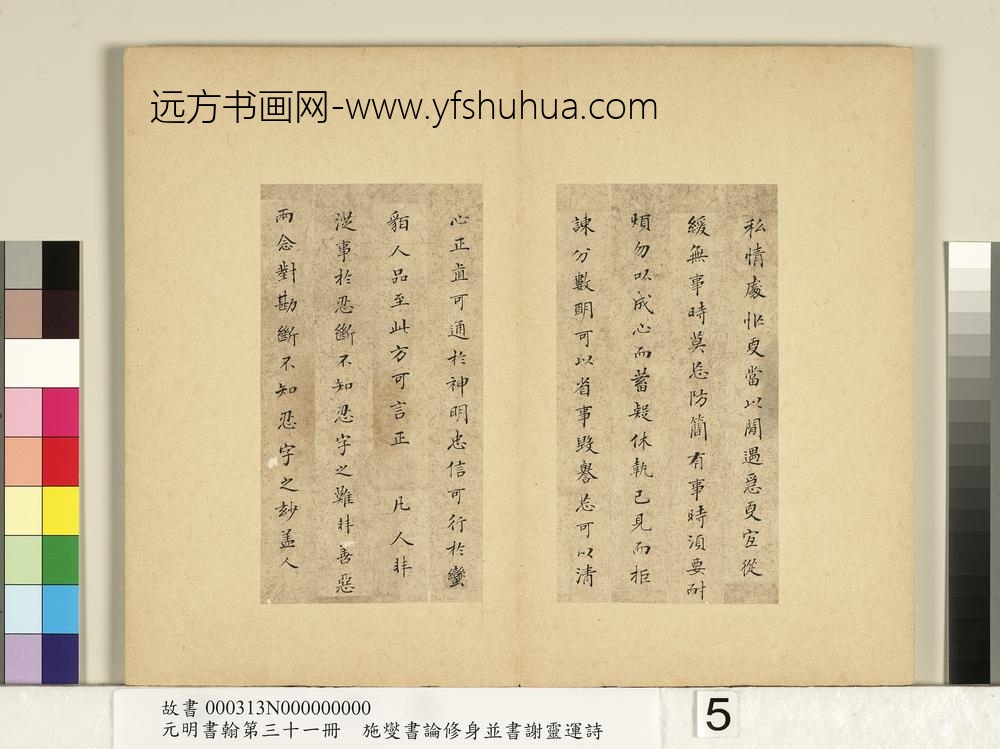 远方书画网-www.yfshuhua.com
私情處忙更當以閒遇急更宜從
緩無事時莫忘防簡有事時須要耐
煩勿以成心而蓄疑休執己見而拒
諫分數明可以省事毀譽忘可以清
心正直可通於神明忠信可行於蠻
貊人品至此方可言正 凡人非
從事於忍斷不知忍字之難非善惡
兩念對勘斷不知忍字之妙蓋人
故書 000313N000000000
元明書翰第三十一冊 施爕書論修身並書謝靈運詩
5